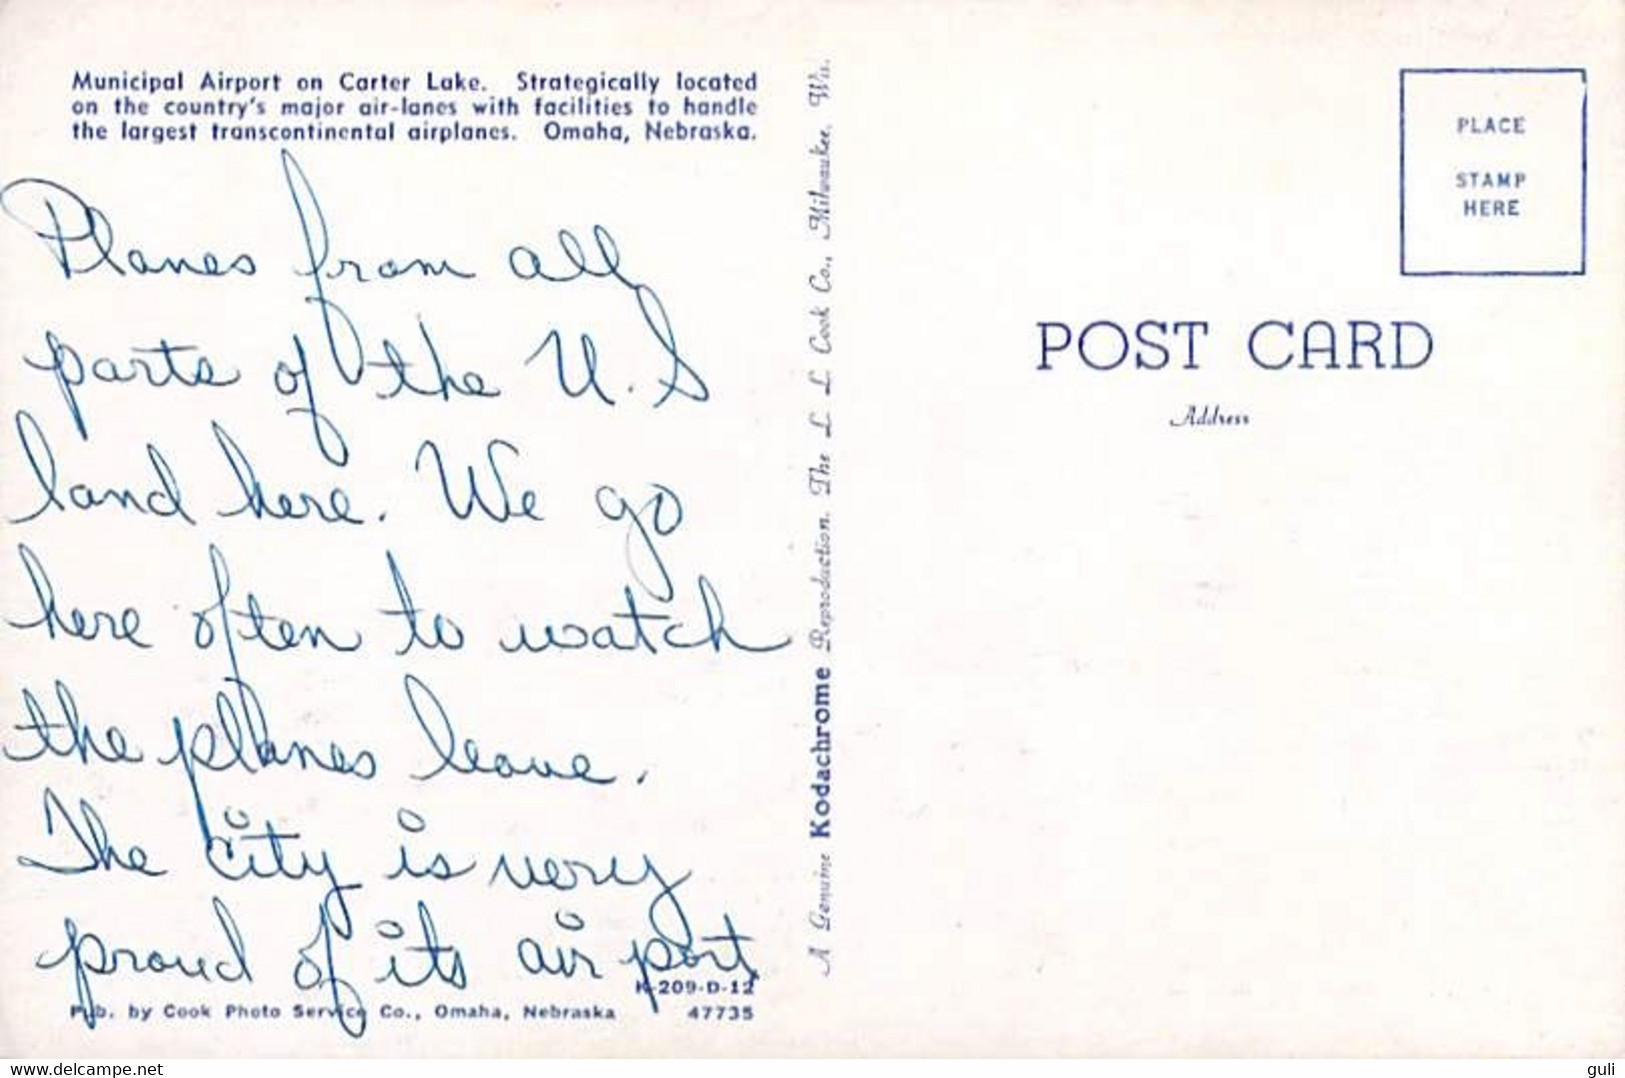 Municipal Airport on Carter Lake. Strategically located
on the country's major air-lanes with facilities to handle
the largest transcontinental airplanes. Omaha, Nebraska.
Planes from all
parts of the U.S
land here. We go
here often to watch
the planes leave.
The city is very
proud of its air port
K-209-D-12
Pub. by Cook Photo Service Co., Omaha, Nebraska 47735
A Genuine Kodachrome Reproduction. The L L Cook Co., Milwaukee, Wis.
PLACE
STAMP
HERE
POST CARD
Address
www.delcampe.net
guli